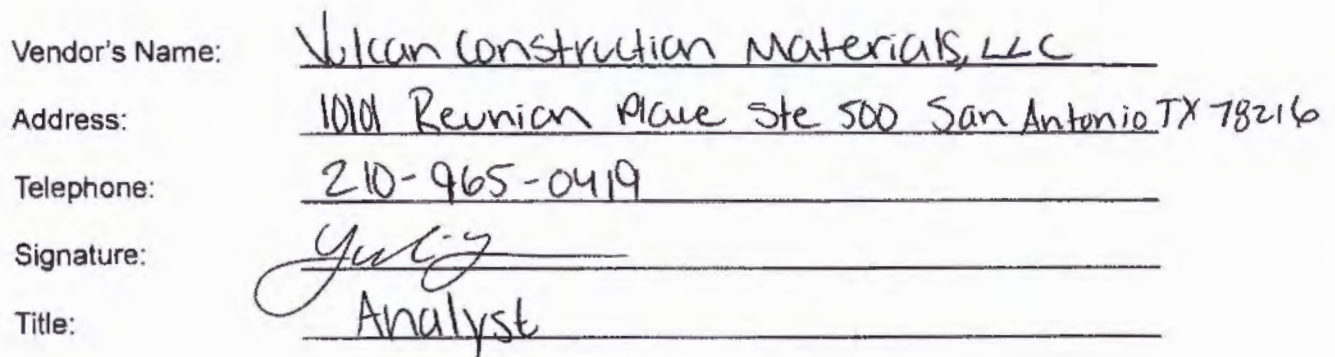 Vendor's Name: Vulcan Construction Materials, LLC
Address: 10101 Reunion Place Ste 500 San Antonio TX 78216
Telephone: 210-965-0419
Signature:
Title: Analyst